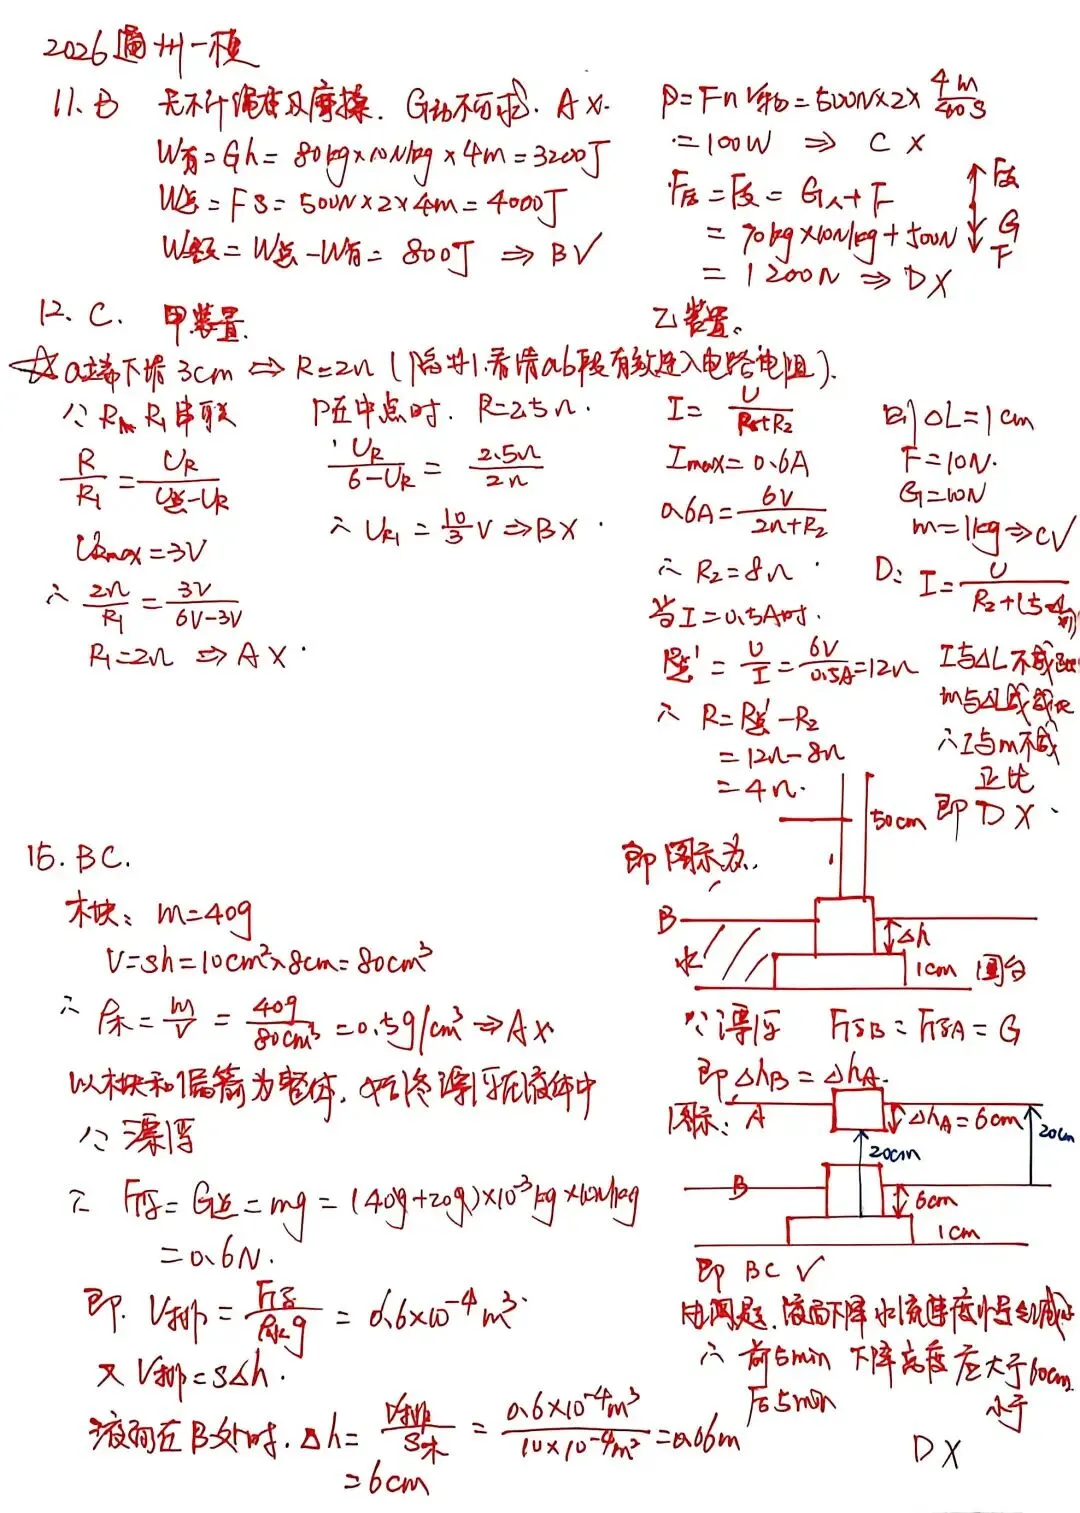 2026通州一模
11. B 无不计绳重及摩擦. G动不可求. A ×.
W有=Gh= 80kg×10N/kg×4m=3200J
W总=FS=500N×2×4m=4000J
W额=W总-W有=800J ⇒ B√
P=Fn V物=500N×2×4m/40s
=100W ⇒ C ×
F压=F支=G人+F
=70kg×10N/kg+500N
=1200N ⇒ D×
F支
G
F
12. C. 甲装置.
☆ a端下端3cm ⇒ R=2Ω (陷井!看清ab段有效连入电路电阻).
∵ R、R1串联
R/R1=UR/(U总-UR)
URmax=3V
∴ 2Ω/R1=3V/(6V-3V)
R1=2Ω ⇒ A ×.
P在中点时. R=2.5Ω.
UR/(6-UR)=2.5Ω/2Ω
∴ UR1=10/3V ⇒ B×.
乙装置.
I=U/(R+R2)
Imax=0.6A
0.6A=6V/(2Ω+R2)
∴ R2=8Ω
当I=0.5A时.
R总'=U/I=6V/0.5A=12Ω
∴ R=R总'-R2
=12Ω-8Ω
=4Ω.
则△L=1cm
F=10N.
G=10N
m=1kg ⇒ C√
D: I=U/
I与△L不成正比
m与△L成正比
∴I与m不成
正比
即 D ×.
15. BC.
木块: m=40g
V=sh=10cm²×8cm=80cm³
∴ ρ木=m/V=40g/80cm³=0.5g/cm³ ⇒ A×
以木块和指箭为整体. 始终漂浮在液体中
∵ 漂浮
∴ F浮=G总=mg=(40g+20g)×10⁻³kg×10N/kg
=0.6N.
即. V排=F浮/ρ水g=0.6×10⁻⁴m³.
又V排=S△h.
液面在B处时. △h=V排/S木=0.6×10⁻⁴m³/10×10⁻⁴m²=0.06m
=6cm
即图示为.
50cm
B
△h
水
1cm 圆台
∵漂浮 F浮B=F浮A=G
即△hB=△hA.
图示: A
△hA=6cm
20cm
20cm
B
6cm
1cm
即 BC √
由问题. 液面下降水流速度慢会减小
∴ 前5min 下降高度应大于10cm.
后5min 小于
D×